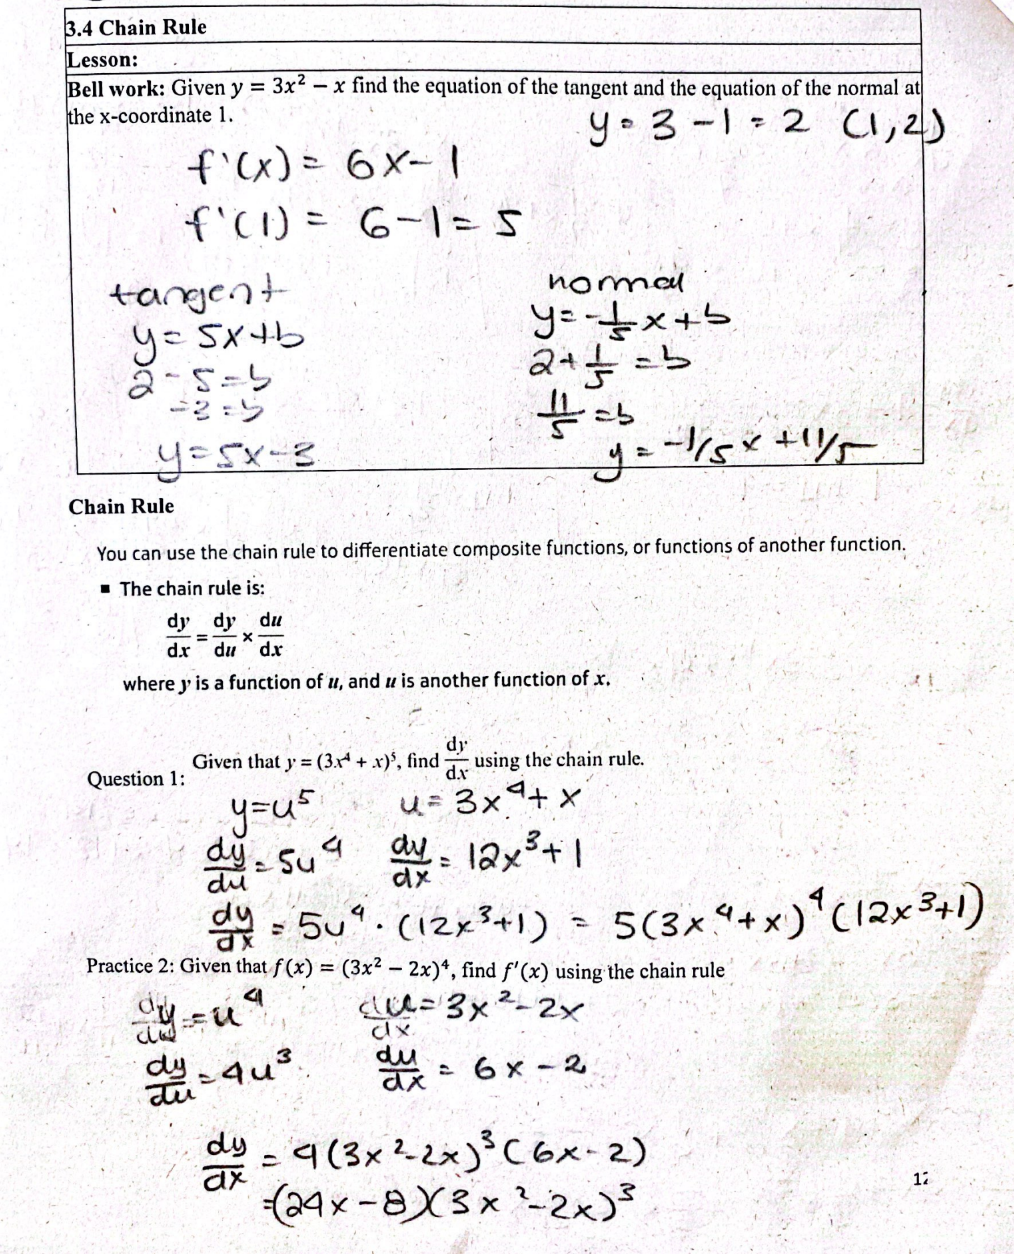 3.4 Chain Rule
Lesson:
Bell work: Given y = 3x² − x find the equation of the tangent and the equation of the normal at
the x-coordinate 1.
y = 3 - 1 = 2 (1,2)
f'(x) = 6x - 1
f'(1) = 6 - 1 = 5
tangent
y = 5x + b
2 - 5 = b
-3 = b
y = 5x - 3
normal
y = -1/5 x + b
2 + 1/5 = b
11/5 = b
y = -1/5 x + 11/5
Chain Rule
You can use the chain rule to differentiate composite functions, or functions of another function.
▪ The chain rule is:
dy/dx = dy/du × du/dx
where y is a function of u, and u is another function of x.
Question 1: Given that y = (3x⁴ + x)⁵, find dy/dx using the chain rule.
y = u⁵ u = 3x⁴ + x
dy/du = 5u⁴ du/dx = 12x³ + 1
dy/dx = 5u⁴ · (12x³+1) = 5(3x⁴+x)⁴(12x³+1)
Practice 2: Given that f(x) = (3x² − 2x)⁴, find f'(x) using the chain rule
dy/du = u⁴ du/dx = 3x² - 2x
dy/du = 4u³ du/dx = 6x - 2
dy/dx = 4(3x²-2x)³(6x-2)
=(24x-8)(3x²-2x)³